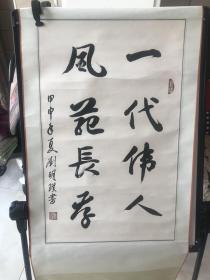 一代伟人
风范長存
甲申年夏劉明璞书